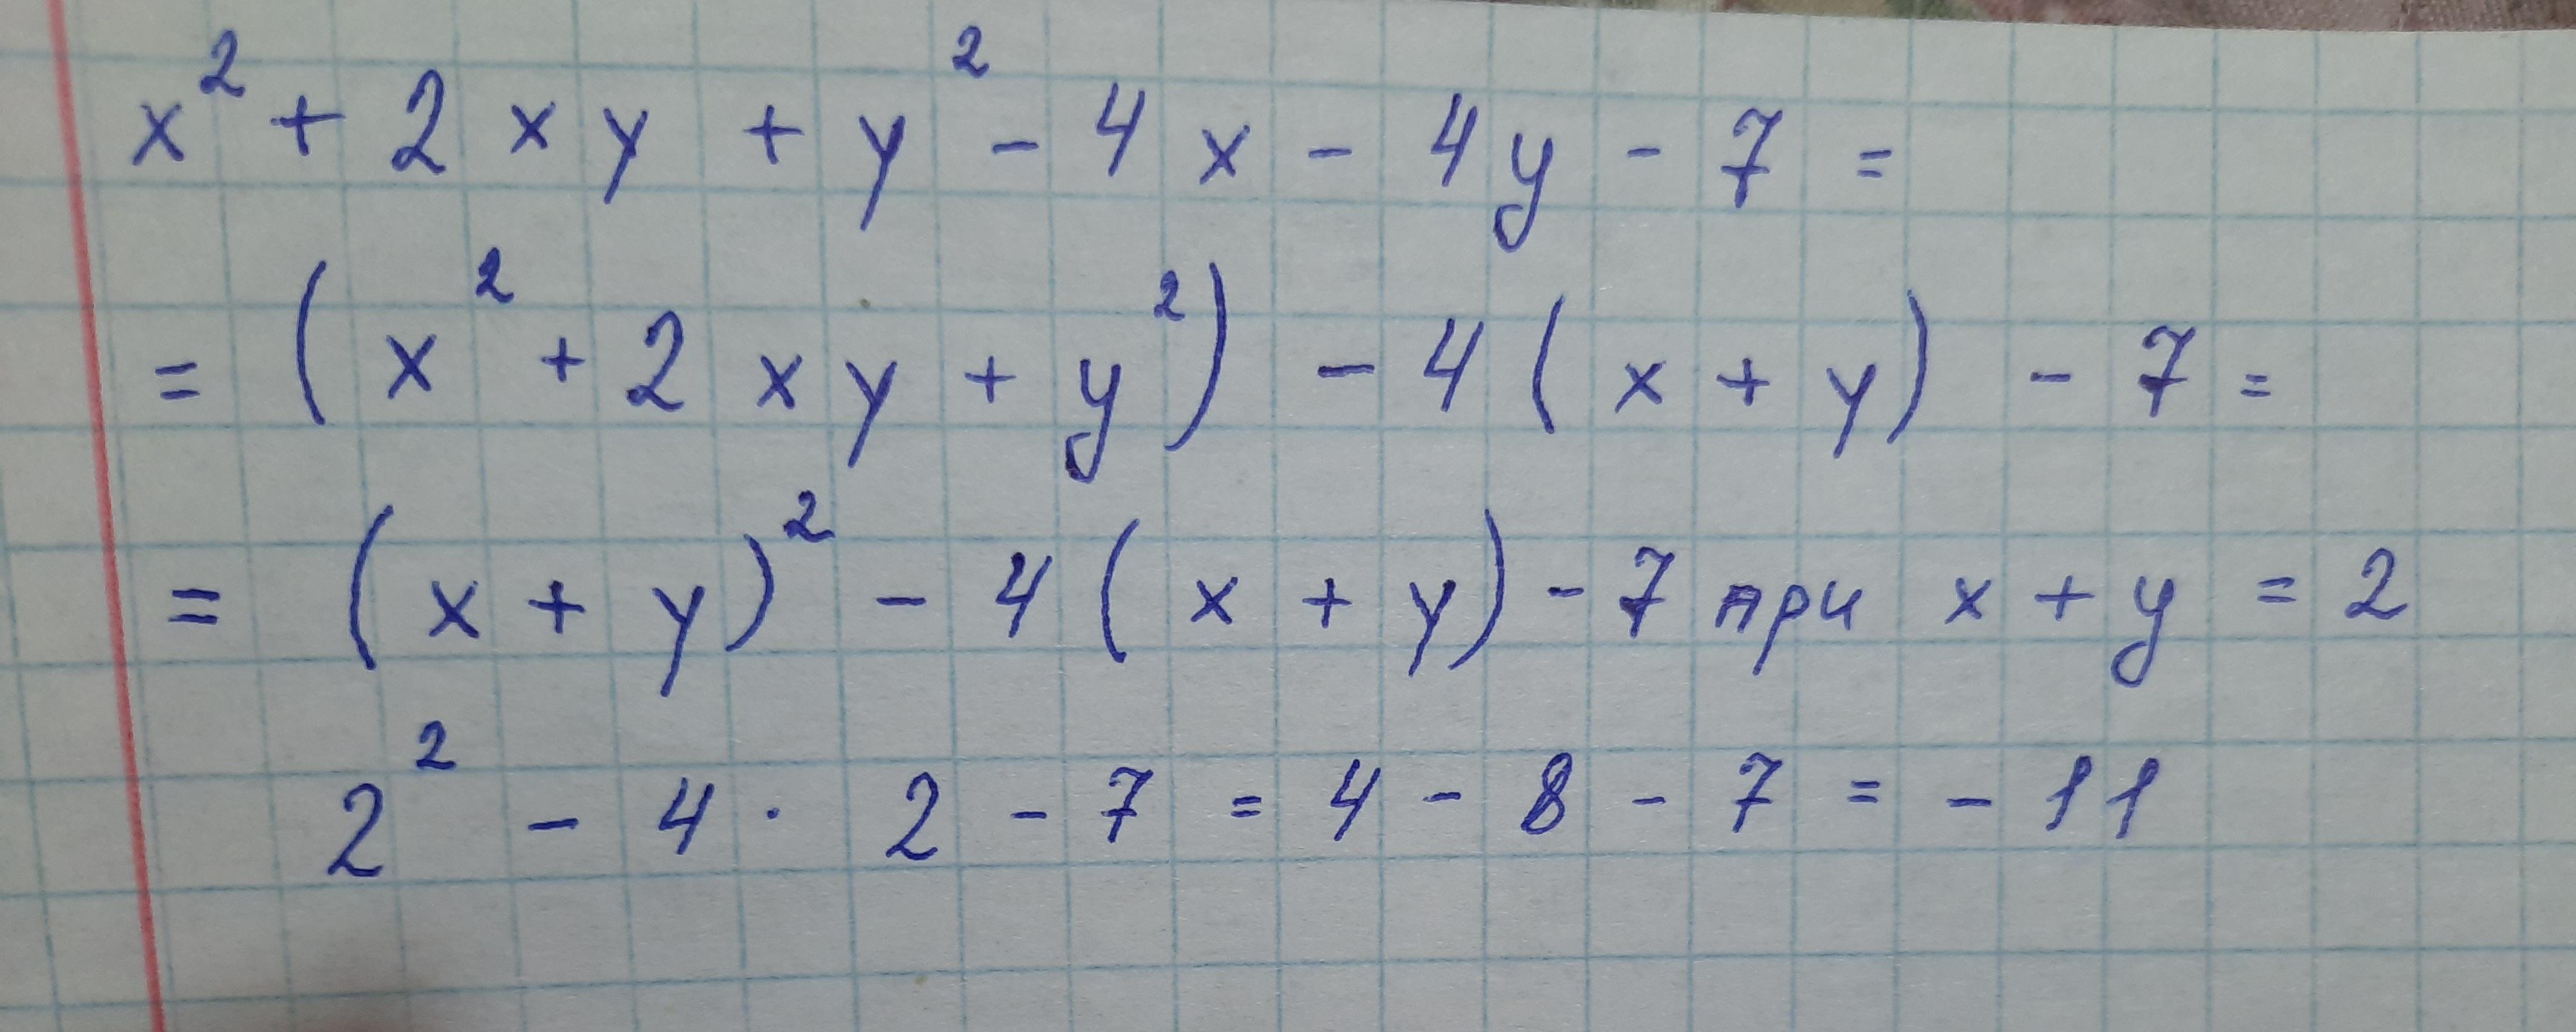 x² + 2xy + y² - 4x - 4y - 7 =
= (x² + 2xy + y²) - 4(x + y) - 7 =
= (x + y)² - 4(x + y) - 7 при x + y = 2
2² - 4 · 2 - 7 = 4 - 8 - 7 = - 11